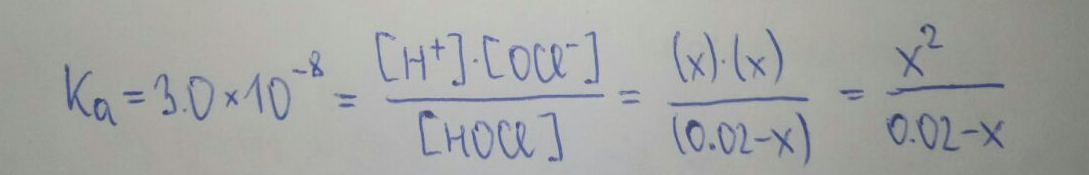 Ka = 3.0×10⁻⁸ = [H⁺]·[OCl⁻] / [HOCl] = (x)·(x) / (0.02-x) = x² / 0.02-x